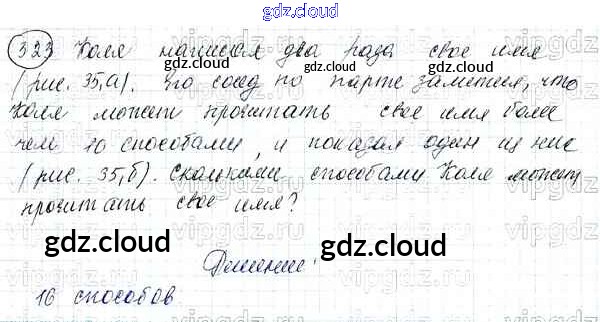 gdz.cloud
323 Коля написал два раза свое имя
(рис. 35,а). Его сосед по парте заметил, что
Коля может прочитать свое имя более
чем 10 способами, и показал один из них
(рис. 35,б). Сколькими способами Коля может
прочитать свое имя?
gdz.cloud
gdz.cloud
Решение:
16 способов
gdz.cloud
gdz.cloud